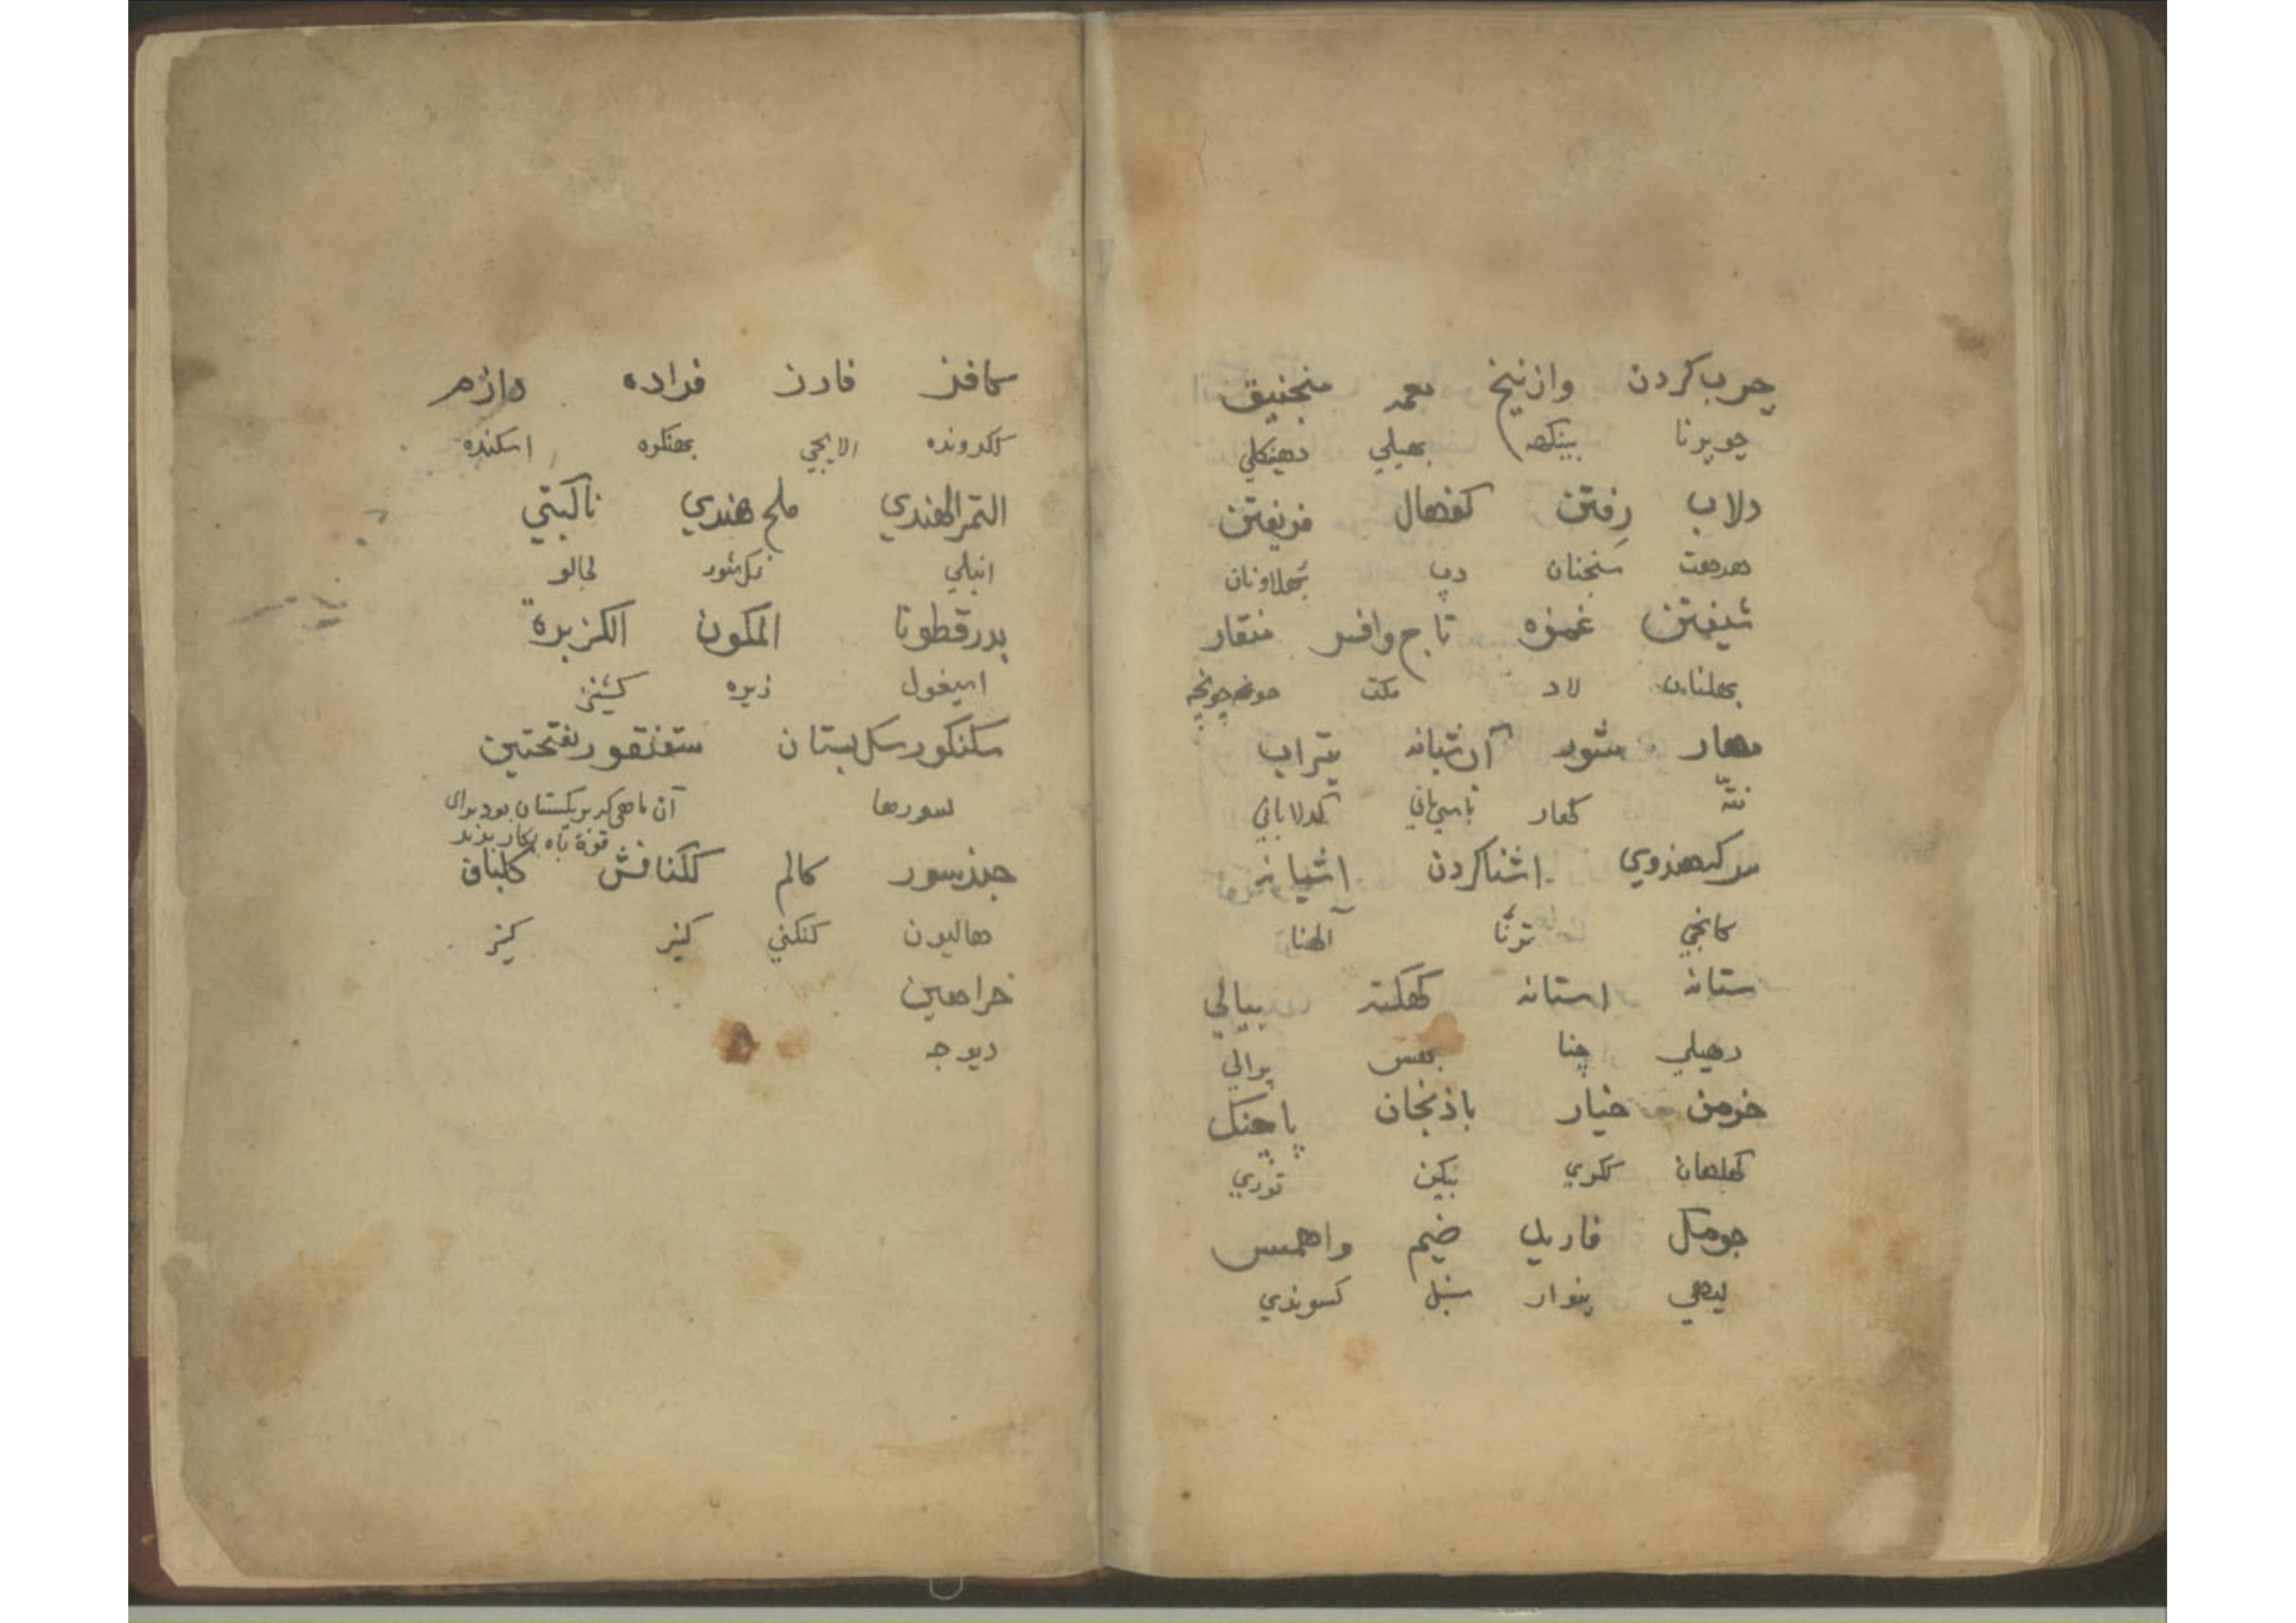 چرب کردن وازنیخ منجنیق
چوپرنا بینکھہ بھیلي دھینکلي
دلاب رفتن کفھال فریفتن
سنجنان دپ بھلاونان
شیفتن غمزه تاج وافسر منقار
بھلنان لاد مکت چونچہ
مھار شور آن شبانہ تیراب
نتہ کھار باسي پاني کدلا پاني
سرکہ ھندوي اشناکردن اشیانہ
کانجي ترنا آلھنا
ستانہ استانہ کھکتہ بیالي
دھیلي چنا بھس پرالي
خرمن خیار باذنجان پاچنک
کھلھان ککري بیکن توري
جومکل فاریل ضیم واھمس
لیدھي پنوار سنبل کسوندي
کافنز فارن فراده داژم
ککرونده الایچي بھنکره اسکنده
التمرالھندي ملح ھندي ناکبتي
انبلي نمک شور لجالو
بدرقطونا المکون الکزبرة
اسپغول زیره کشنیز
سکنکور سکل بستان سقنقور بفتحتین
لسورھا آن ماھي کہ بریکستان بود برای
قوة باه بکار برند
جندسور کالم ککنافش کلباف
ھالیون کنکني کنیر کنیر
خراھین
دیوجہ